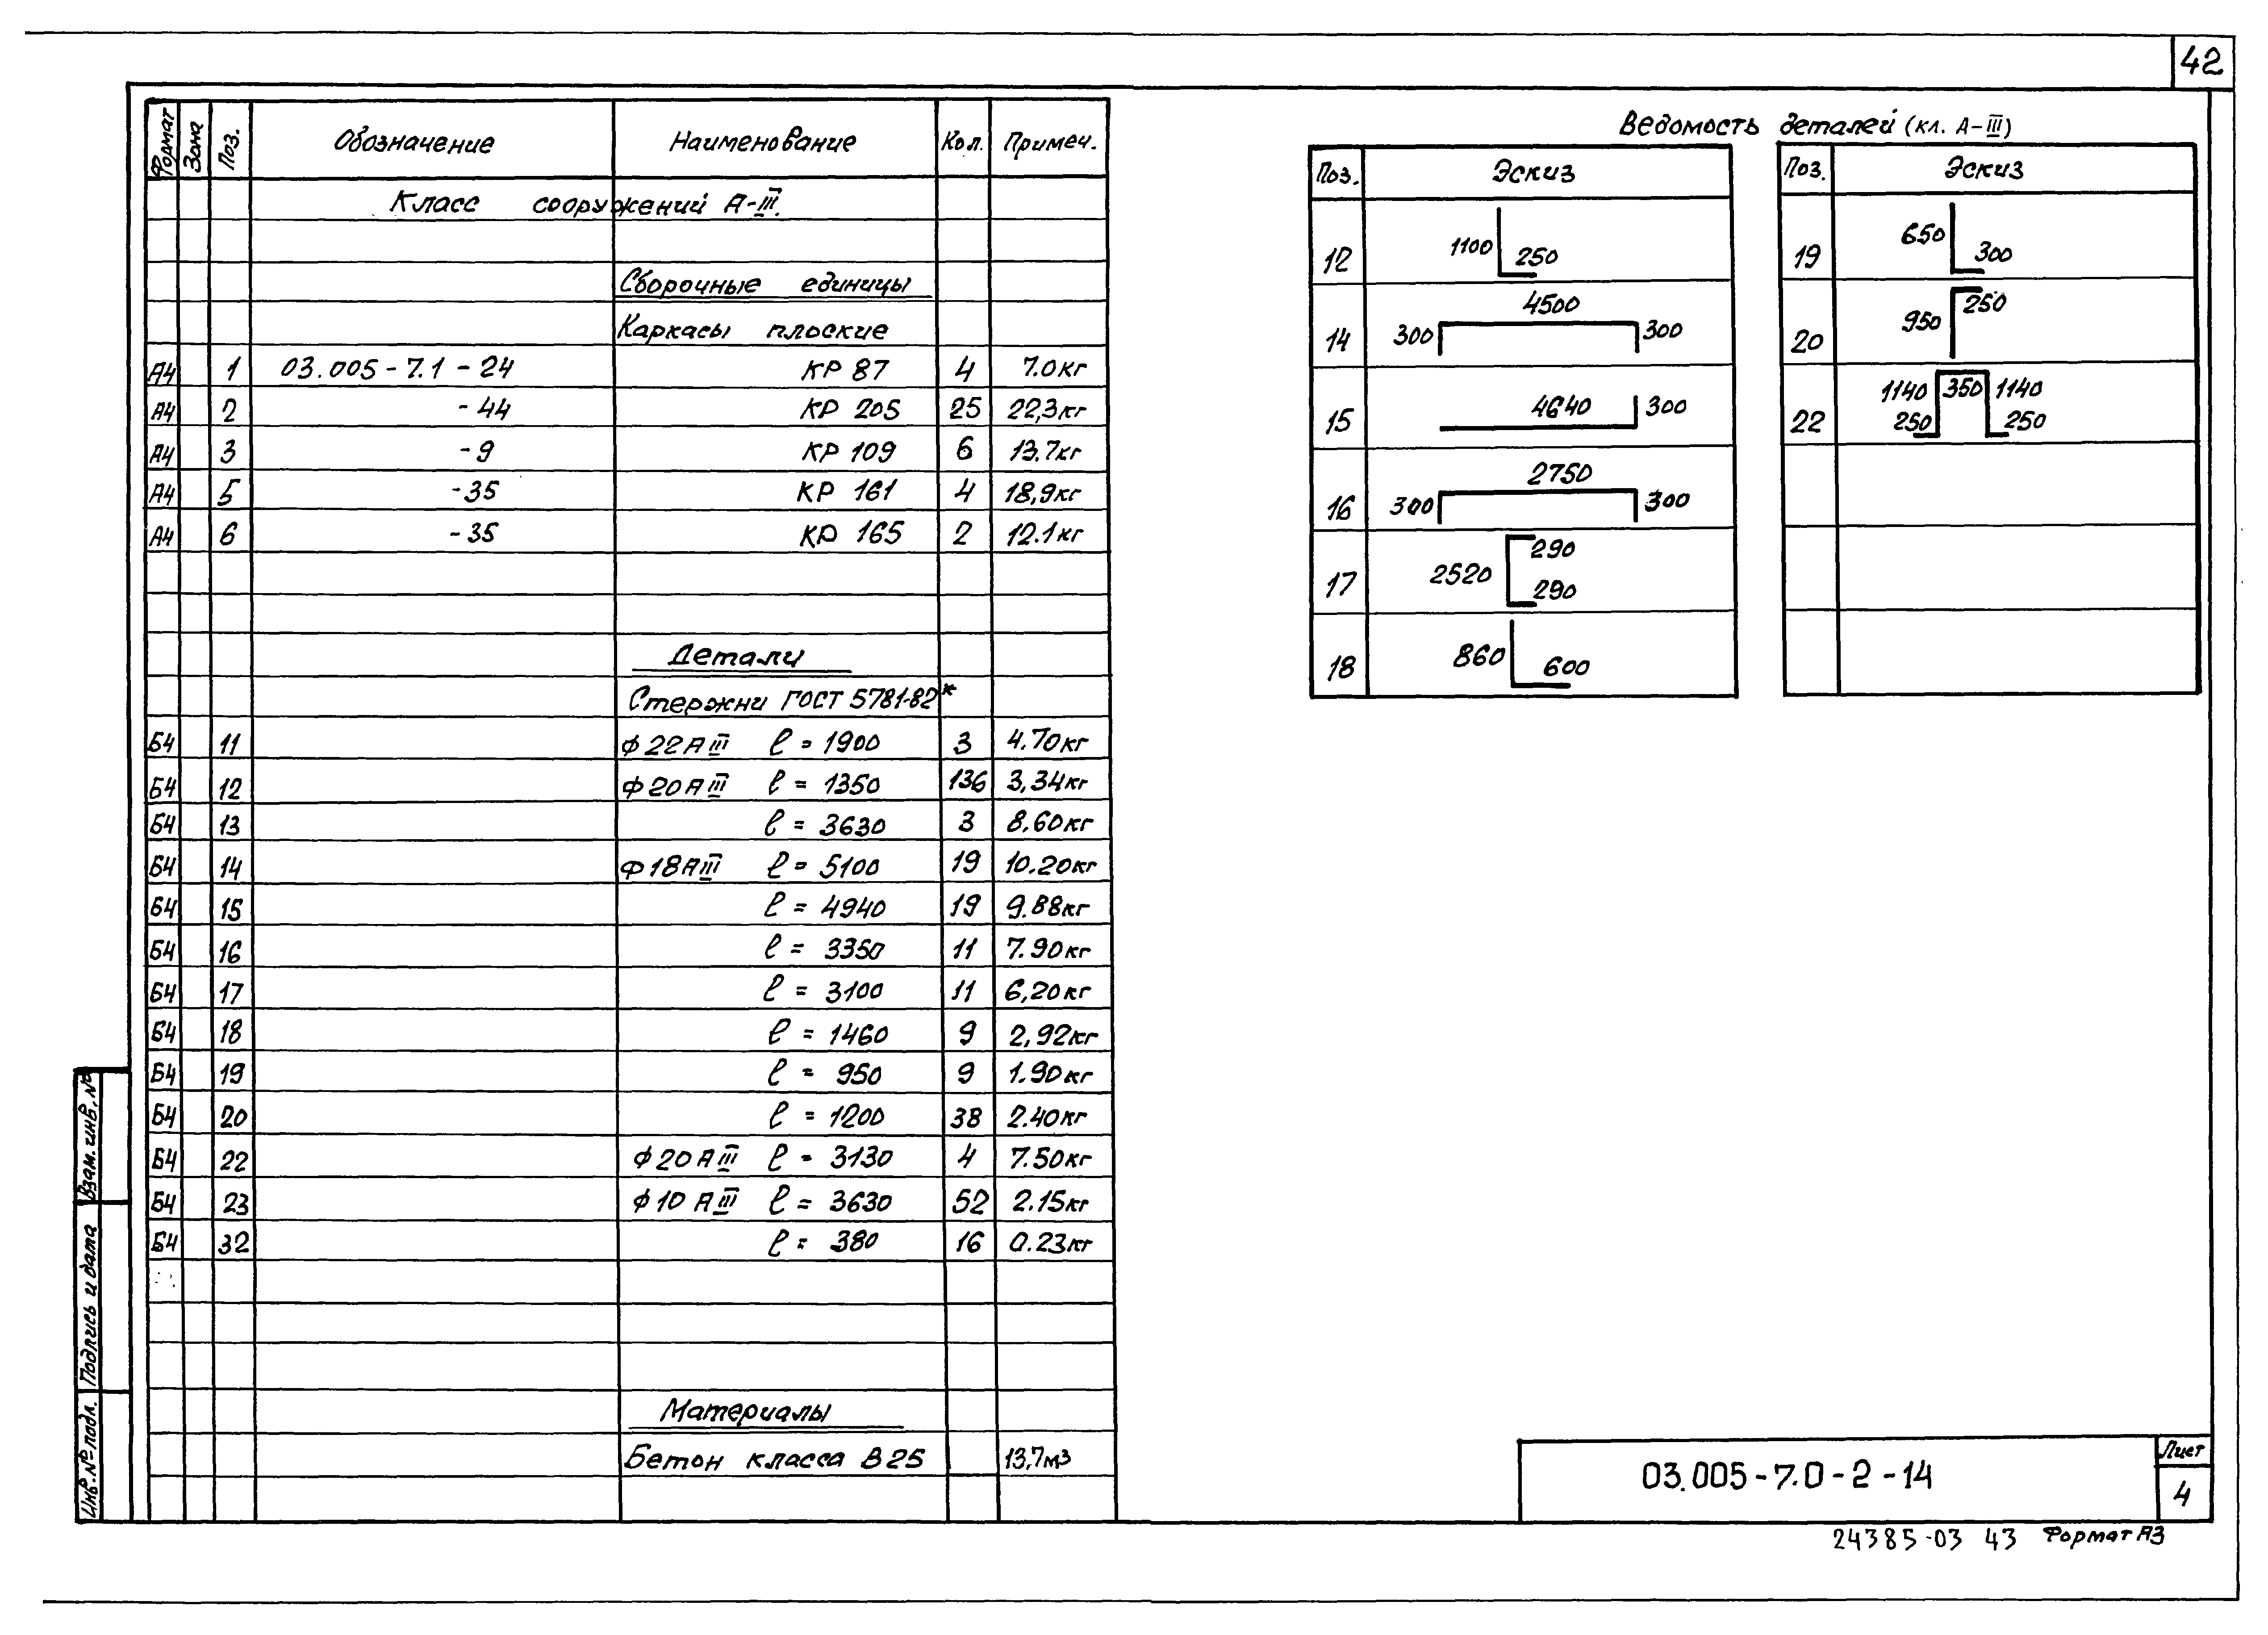 42
Формат Зона Поз. Обозначение Наименование Кол. Примеч.
Класс сооружений А-III
Сборочные единицы
Каркасы плоские
А4 1 03.005-7.1-24 КР 87 4 7.0кг
А4 2 -44 КР 205 25 22,3кг
А4 3 -9 КР 109 6 13.7кг
А4 5 -35 КР 161 4 18,9кг
А4 6 -35 КР 165 2 12.1кг
Детали
Стержни ГОСТ 5781-82*
Б4 11 Ф22АIII ℓ = 1900 3 4.70кг
Б4 12 Ф20АIII ℓ = 1350 136 3,34кг
Б4 13 ℓ = 3630 3 8,60кг
Б4 14 Ф18АIII ℓ = 5100 19 10.20кг
Б4 15 ℓ = 4940 19 9.88кг
Б4 16 ℓ = 3350 11 7.90кг
Б4 17 ℓ = 3100 11 6,20кг
Б4 18 ℓ = 1460 9 2,92кг
Б4 19 ℓ = 950 9 1.90кг
Б4 20 ℓ = 1200 38 2.40кг
Б4 22 Ф20АIII ℓ = 3130 4 7.50кг
Б4 23 Ф10АIII ℓ = 3630 52 2.15кг
Б4 32 ℓ = 380 16 0.23кг
Материалы
Бетон класса В25 13,7м3
Ведомость деталей (кл. А-III)
Поз. Эскиз
12 1100 250
14 300 4500 300
15 4640 300
16 300 2750 300
17 2520 290 290
18 860 600
Поз. Эскиз
19 650 300
20 950 250
22 1140 350 1140 250 250
Взам. инв. №
Подпись и дата
Инв. № подл.
03.005-7.0-2-14
Лист
4
24385-03 43 Формат А3